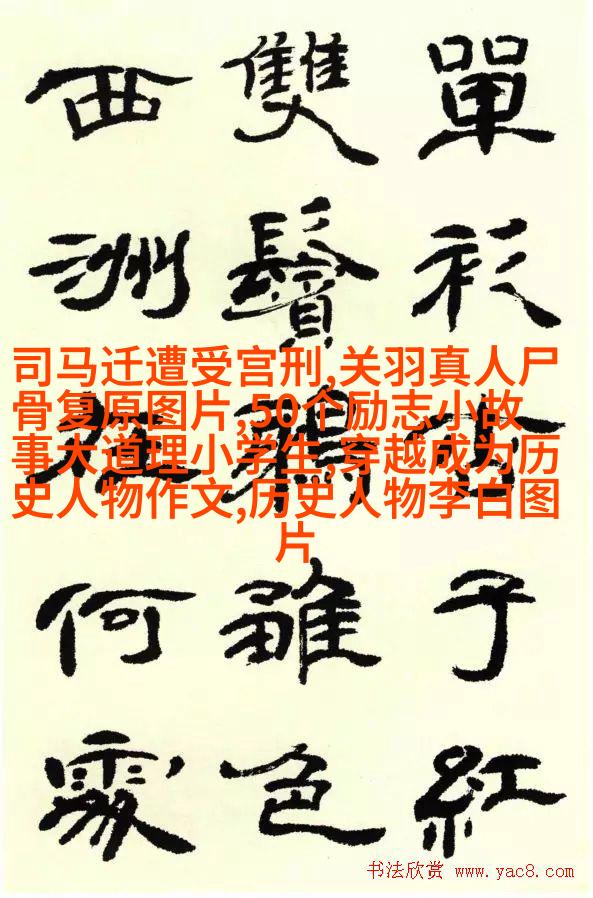 單衫杏子紅
雙鬢鴉雛色
西洲在何處
司马迁遭受宫刑,关羽真人尸
骨复原图片,50个励志小故
事大道理小学生,穿越成为历
史人物作文,历史人物李白图
片
书法欣赏 www.yac8.com